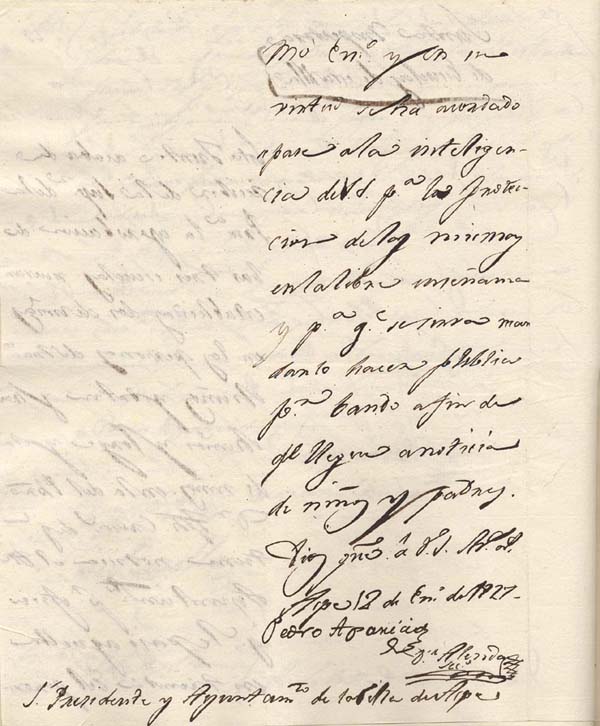 mo En.º y en su
virtud se ha acordado
pase a la inteligen-
cia de V.S. p.ª la protec-
cion de los mismos
en la libre enseñanza
y p.ª q.e se sirva man
darlo hacer publica
p.r bando a fin de
qe llegue a noticia
de niños y padres.
Dios gue. a V.S. m.s a.s
Aspe 12 de En.º de 1827-
Pedro Aparicio
S.r Presidente y Ayuntam.to de la Villa de Aspe